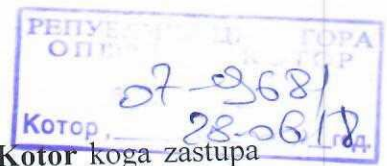 РЕПУБ ГОРА
ОП ОР
07-968/
Котор, 28-06/18 год.
Kotor koga zastupa